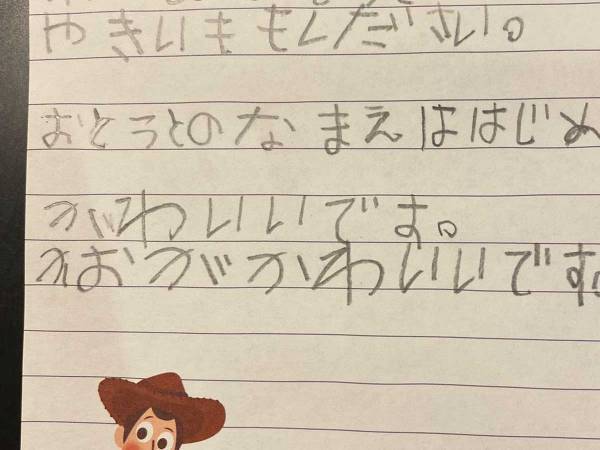 やきいももください。
おとうとのなまえははじめ
がわいいです。
かおがかわいいです。